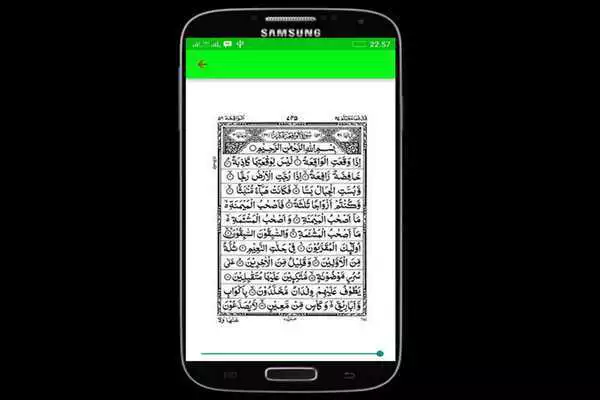 SAMSUNG
22.57
الواقعة ٥٦
٤٢٥
قال فما خطبكم ٢٧
بِسْمِ اللّٰهِ الرَّحْمٰنِ الرَّحِيْمِ
اِذَا وَقَعَتِ الْوَاقِعَةُ لَيْسَ لِوَقْعَتِهَا كَاذِبَةٌ
خَافِضَةٌ رَّافِعَةٌ اِذَا رُجَّتِ الْاَرْضُ رَجًّا
وَّبُسَّتِ الْجِبَالُ بَسًّا فَكَانَتْ هَبَآءً مُّنْۢبَثًّا
وَّكُنْتُمْ اَزْوَاجًا ثَلٰثَةً فَاَصْحٰبُ الْمَيْمَنَةِ
مَاۤ اَصْحٰبُ الْمَيْمَنَةِ وَاَصْحٰبُ الْمَشْـَٔمَةِ
مَاۤ اَصْحٰبُ الْمَشْـَٔمَةِ وَالسّٰبِقُوْنَ السّٰبِقُوْنَ
اُولٰٓئِكَ الْمُقَرَّبُوْنَ فِيْ جَنّٰتِ النَّعِيْمِ ثُلَّةٌ
مِّنَ الْاَوَّلِيْنَ وَقَلِيْلٌ مِّنَ الْاٰخِرِيْنَ عَلٰى
سُرُرٍ مَّوْضُوْنَةٍ مُّتَّكِـِٕيْنَ عَلَيْهَا مُتَقٰبِلِيْنَ
يَطُوْفُ عَلَيْهِمْ وِلْدَانٌ مُّخَلَّدُوْنَ بِاَكْوَابٍ
وَّاَبَارِيْقَ وَكَاْسٍ مِّنْ مَّعِيْنٍ لَّا يُصَدَّعُوْنَ
عنها ولا